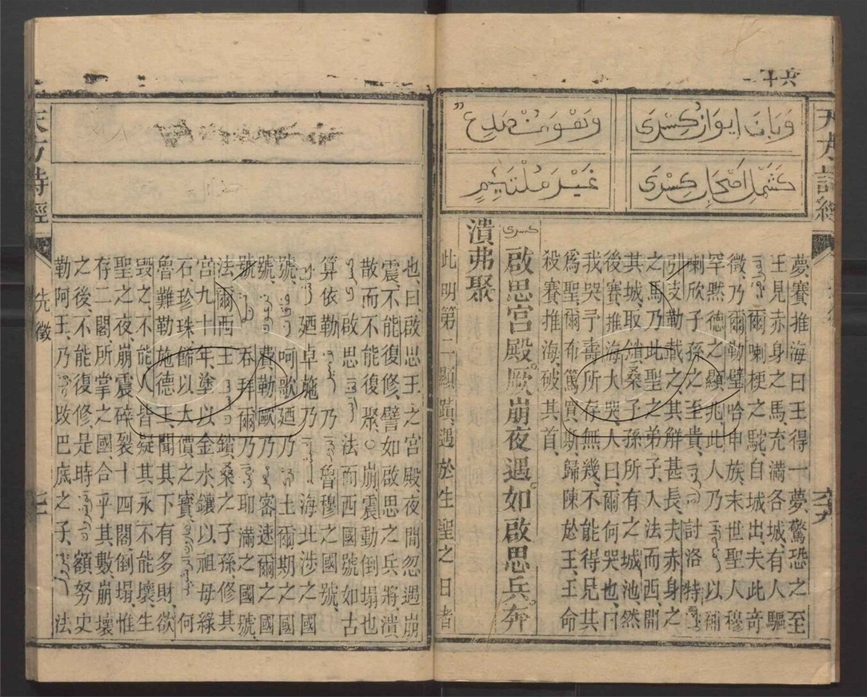 六十一
天方詩經
وَبَاتَ اِيوَانُ كِسْرَى وَهُوَ مُنْصَدِعٌ
كَشَمْلِ اَصْحَابِ كِسْرَى غَيْرَ مُلْتَئِمٍ
夢賽推海曰王得一夢驚恐之至
王見赤身之馬充滿各城有人驅
爾喇梗之駝自城出夫此奇
徵乃爾勒壁哈申族末世聖人穆
罕黙德之顯兆此人乃以補
喇欣子孫之至貴討洛特
引支勒戴之其解甚長夫赤身之
之馬乃此聖之弟子入法而西開
其城取鎖桑子孫所有之城池然
後賽推海大哭人曰爾何哭也曰
我哭乎壽所存無幾不能得見其
爲聖爾布篤買斯歸陳於王王命
殺賽推海破其首
كسرى 啟思宮殿厥崩夜遇如啟思兵奔
潰弗聚
此明第二顯蹟遇於生聖之日者
也曰啟思王之宮殿夜間忽遇崩
震不能復修譬如啟思之兵將潰
散而不能復聚○崩震動倒塌也
啟思法而西國號如古
算依勒乃魯穆之國號
廼卓施乃海北渉之國
號呵歌廼乃土爾期之國
號費勒歐乃審速爾之國
號吞拜爾乃耶滿之國號
法爾西王鎖桑之子孫修其
宮九十年塗以金水鑲以祖母綠
石珍珠飾以大價之寳何
魯難勒施德王聞其下有多財欲
毀之不能人皆疑其永不能壞生
聖之夜崩震碎裂十四閣倒塌惟
存二閣所掌之國合乎其數崩壞
之後不能復修是時額努史
勒阿王乃巴底之子法
天方詩經
先徵